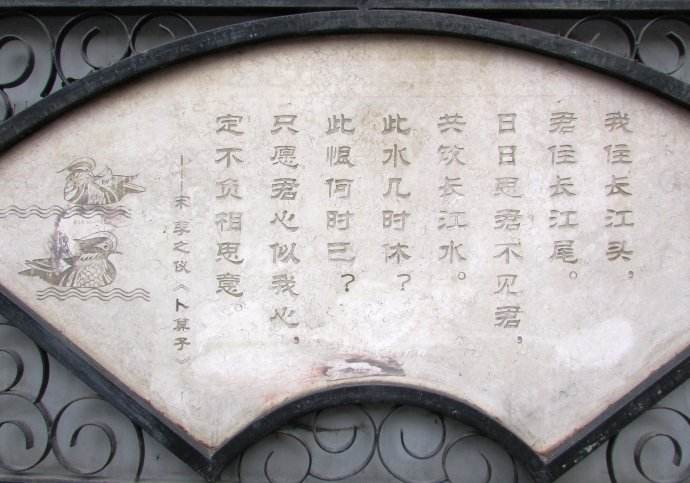 我住长江头，
君住长江尾。
日日思君不见君，
共饮长江水。
此水几时休？
此恨何时已？
只愿君心似我心，
定不负相思意。
——宋 李之仪《卜算子》